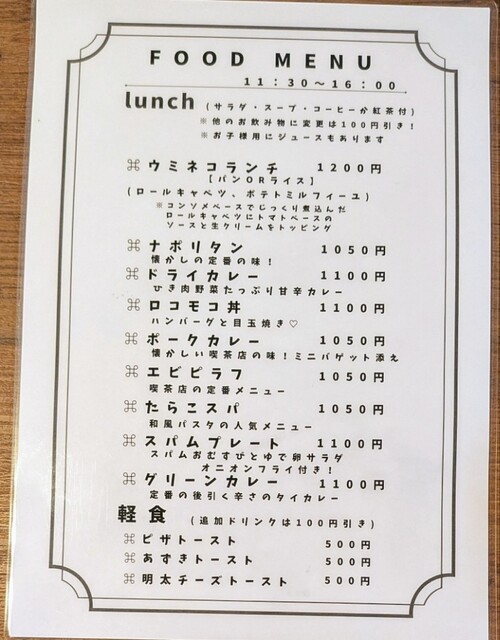 FOOD MENU
11:30～16:00
lunch (サラダ・スープ・コーヒーか紅茶付)
※他のお飲み物に変更は100円引き!
※お子様用にジュースもあります
⌘ ウミネコランチ 1200円
【パンORライス】
(ロールキャベツ、ポテトミルフィーユ)
※コンソメベースでじっくり煮込んだ
ロールキャベツにトマトベースの
ソースと生クリームをトッピング
⌘ ナポリタン 1050円
懐かしの定番の味!
⌘ ドライカレー 1100円
ひき肉野菜たっぷり甘辛カレー
⌘ ロコモコ丼 1100円
ハンバーグと目玉焼き♡
⌘ ポークカレー 1050円
懐かしい喫茶店の味!ミニバゲット添え
⌘ エビピラフ 1050円
喫茶店の定番メニュー
⌘ たらこスパ 1050円
和風パスタの人気メニュー
⌘ スパムプレート 1100円
スパムおむすびとゆで卵サラダ
オニオンフライ付き!
⌘ グリーンカレー 1100円
定番の後引く辛さのタイカレー
軽食 (追加ドリンクは100円引き)
⌘ ピザトースト 500円
⌘ あずきトースト 500円
⌘ 明太チーズトースト 500円